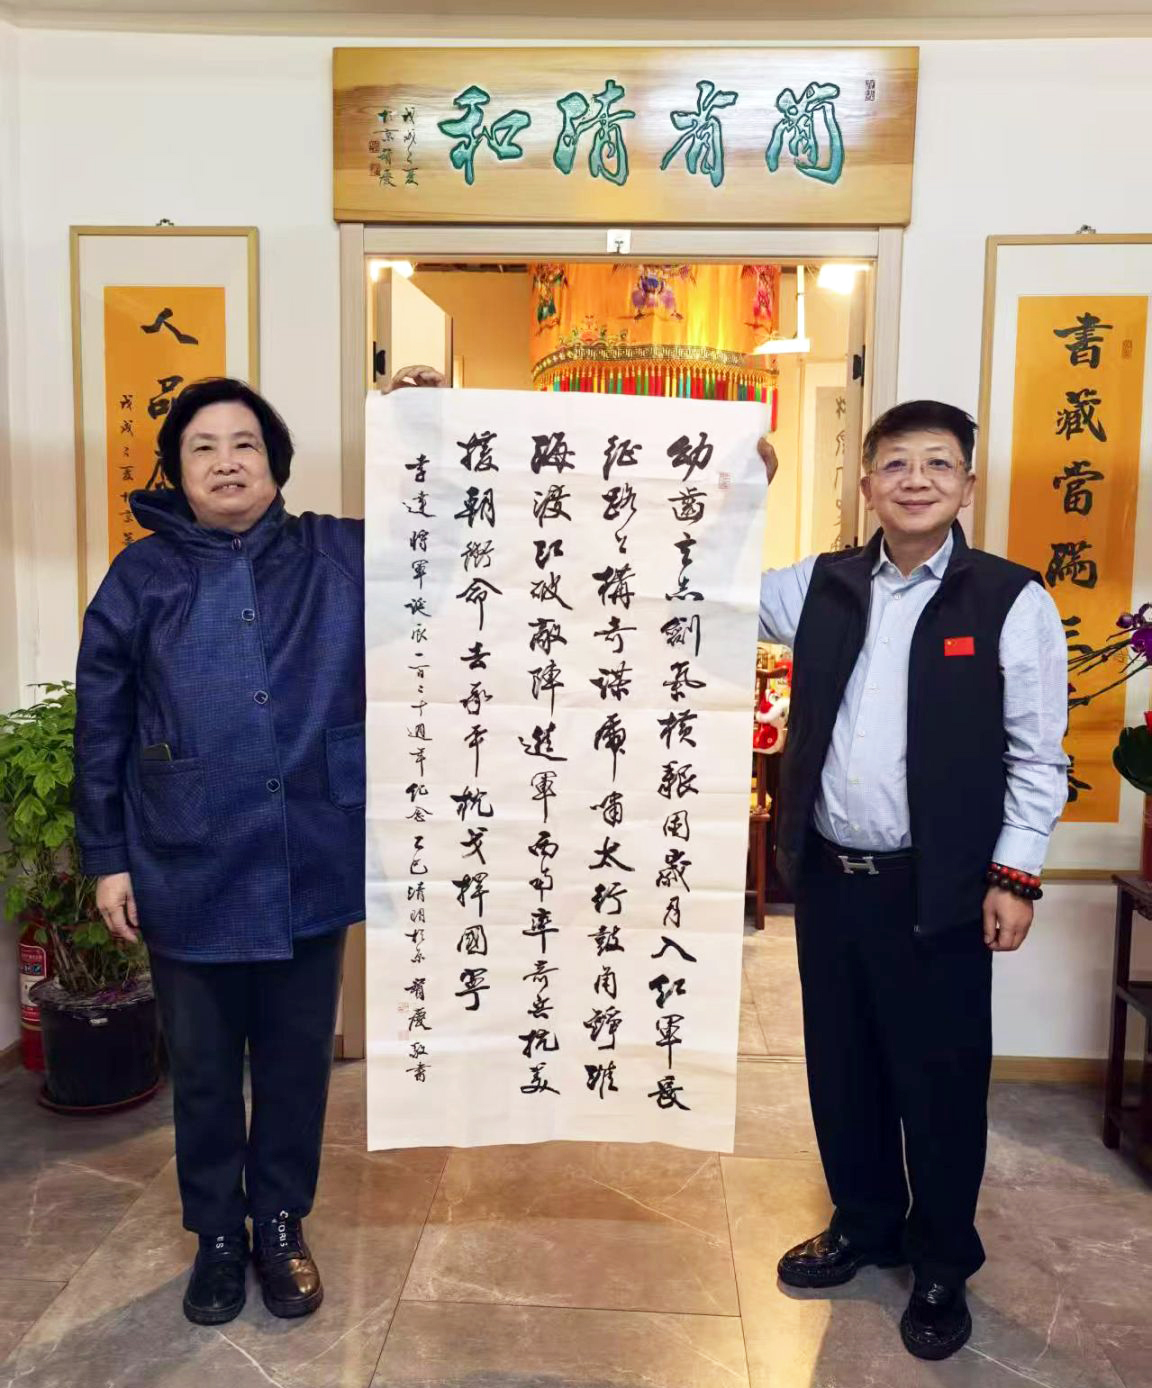 清和
戊戌之夏
於京
書藏當瑞
幼齒立志劍氣橫艱困歲月入紅軍長
征路上構奇謀虎嘯太行鼓角錚淮
海渡江破敵陣進軍西南率奇兵抗美
援朝銜命去承平枕戈捍國寧
李達將軍誕辰一百二十週年紀念 乙巳清明於京 慶敬書
人品
戊戌之夏於京